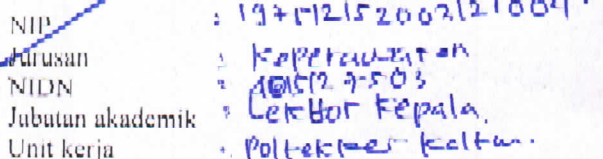 NIP : 197512152002121004
Jurusan : Keperawatan
NIDN :
Jabatan akademik : Lektor Kepala.
Unit kerja : Poltekkes Kaltim.